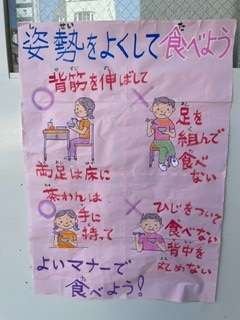 姿勢をよくして食べよう
背筋を伸ばして
両足は床に
足を
組んで
食べ
ない
茶わんは
手に
持って
ひじをついて
食べない
背中を
丸めない
よいマナーで
食べよう!